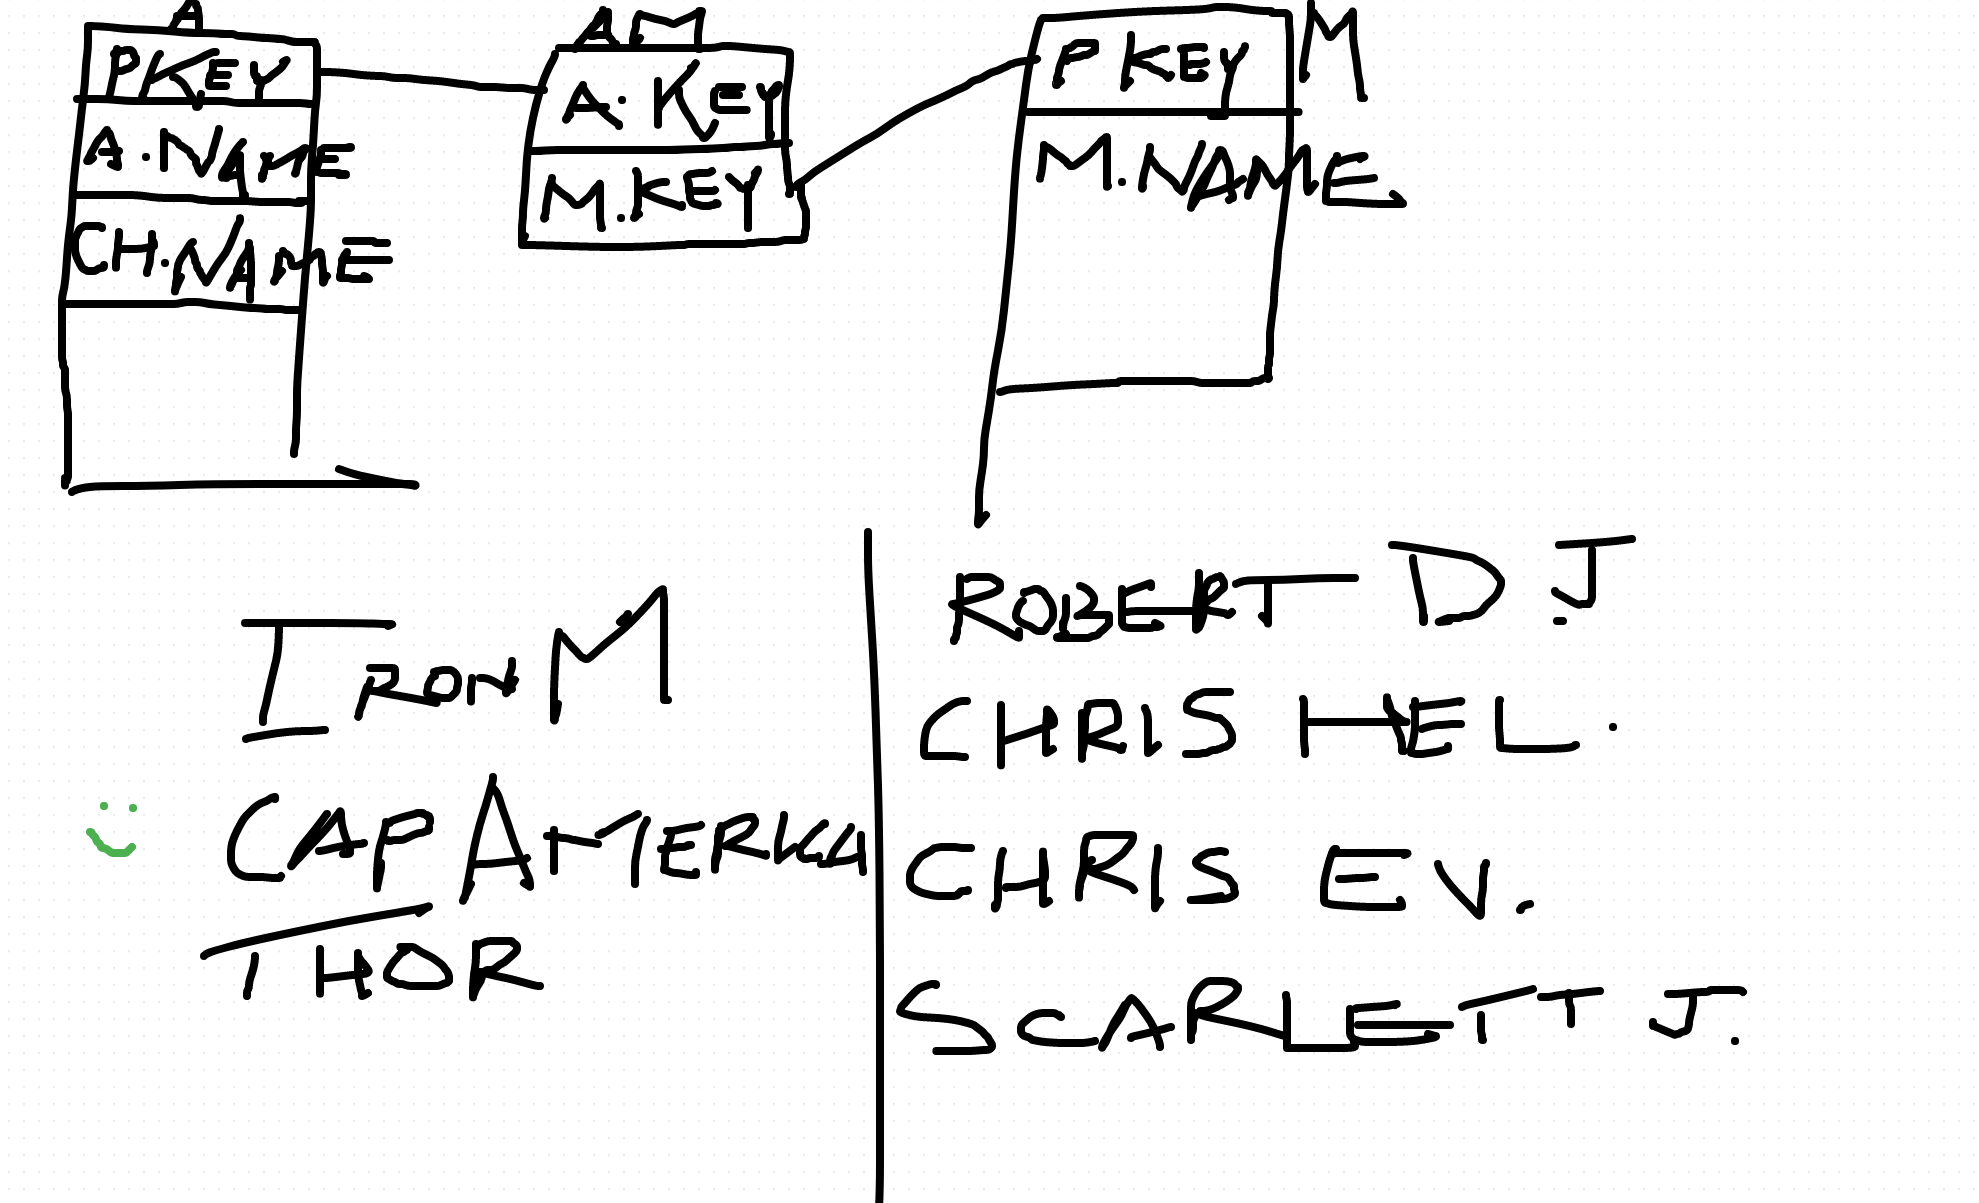 A
P KEY
A.NAME
CH.NAME
AM
A.KEY
M.KEY
M
P KEY
M.NAME
IRON M
CAP AMERICA
THOR
ROBERT D J.
CHRIS HEL.
CHRIS EV.
SCARLETT J.